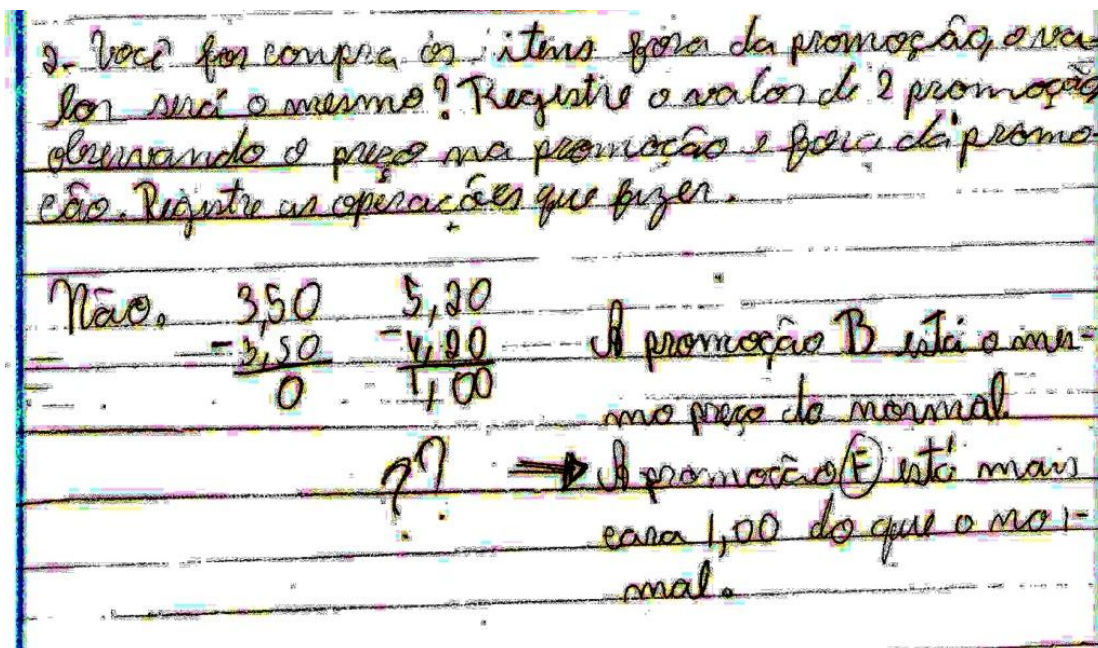 2- Você for compra os itens fora da promoção, o va-
lor será o mesmo? Registre o valor de 2 promoção
observando o preço na promoção e fora da promo-
ção. Registre as operações que fizer.
Não. 3,50 5,20
- 3,50 - 4,20 A promoção B está o mes-
0 1,00 mo preço do normal
?? → A promoção E está mais
cara 1,00 do que o nor-
mal.